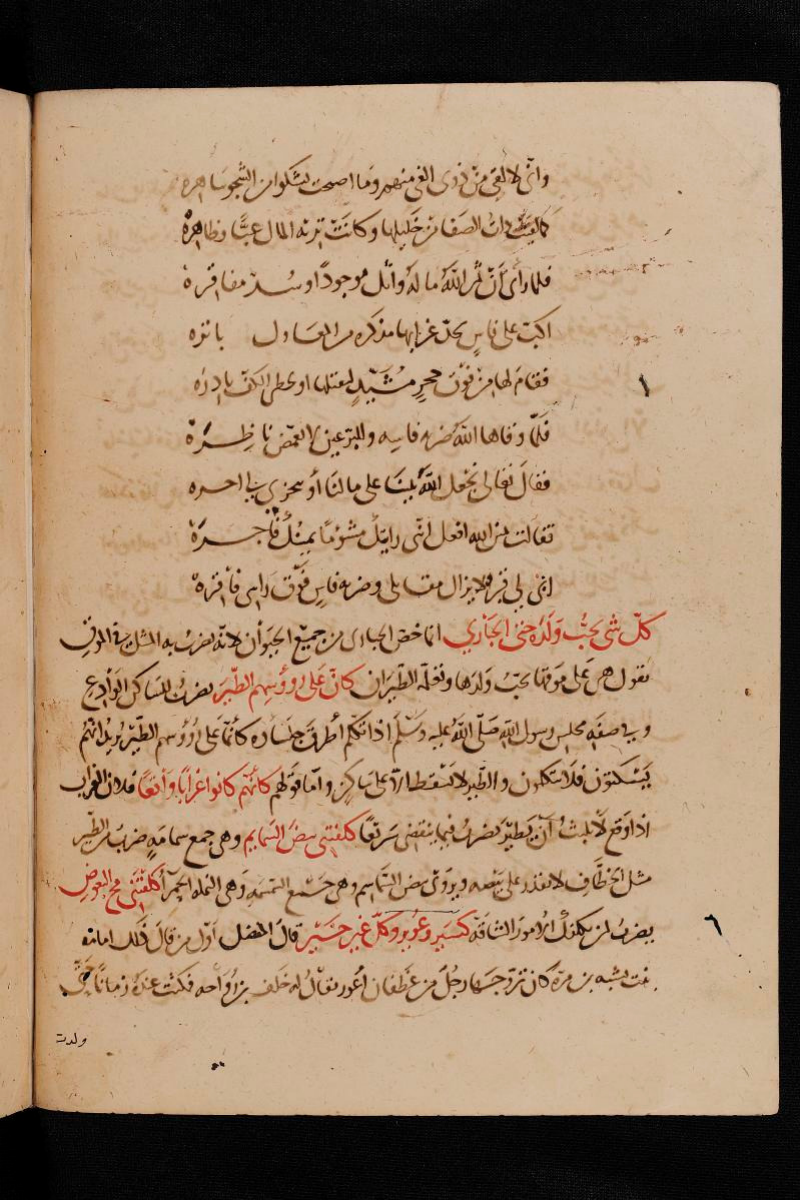 وانى لالقى من ذوى الغى منهم وما اصبحت تشكو من الشجو ساهره
كما لقيت ذات الصفا من خليلها وكانت تريه المال غبا وظاهره
فلما رأى أن ثمر الله ماله وأثل موجودا وسد مفاقره
اكب على فاس يحد غرابها مذكرة من المعاول باتره
فقام لها من فوق جحر مشيد ليقتلها او يخطى الكف بادره
فلما وقاها الله ضربه فاسه وللبر عين لا تغمض ناظرة
فقال تعالى نجعل الله بيننا على مالنا أو تنجزى لى اخره
فقالت يمين الله افعل اننى رايتك مشؤما يمينك فاجرة
ابى لى قبر لا يزال مقابلى وضربه فاس فوق راسى فاقرة
كل شى يحب ولده حتى الحبارى انما خص الحبارى من جميع الحيوان لانه يضرب به المثل فى الموق
يقول هى على موقها تحب ولدها وتعلمه الطيران كان على رؤوسهم الطير يضرب للساكن الوادع
وفى صفه مجلس رسول الله صلى الله عليه وسلم اذا تكلم أطرق جلساؤه كأنما على رؤوسهم الطير يريد انهم
يسكتون فلا يتكلمون والطير لا تسقط الا على ساكن واما قولهم كأنهم كانوا غرابا واقعا فلان الغراب
اذا وقع لا يلبث أن يطير يضرب فيما ينقضى سريعا كلفتنى بيض السمايم وهى جمع سمامه ضرب من الطير
مثل الخطاف لا يقدر على بيضه ويروى بيض السماسم وهى جمع السمسمه وهى النمله الحمرآ كلفتنى مخ البعوض
يضرب لمن يكلفك الامور الشاقه كسير وعوير وكل غير خير قال المفضل اول من قال ذلك امامه
بنت نشبه بن مرة كان تزوجها رجل من غطفان أعور يقال له خلف بن رواحه فمكثت عنده زمانا حتى
ولدت